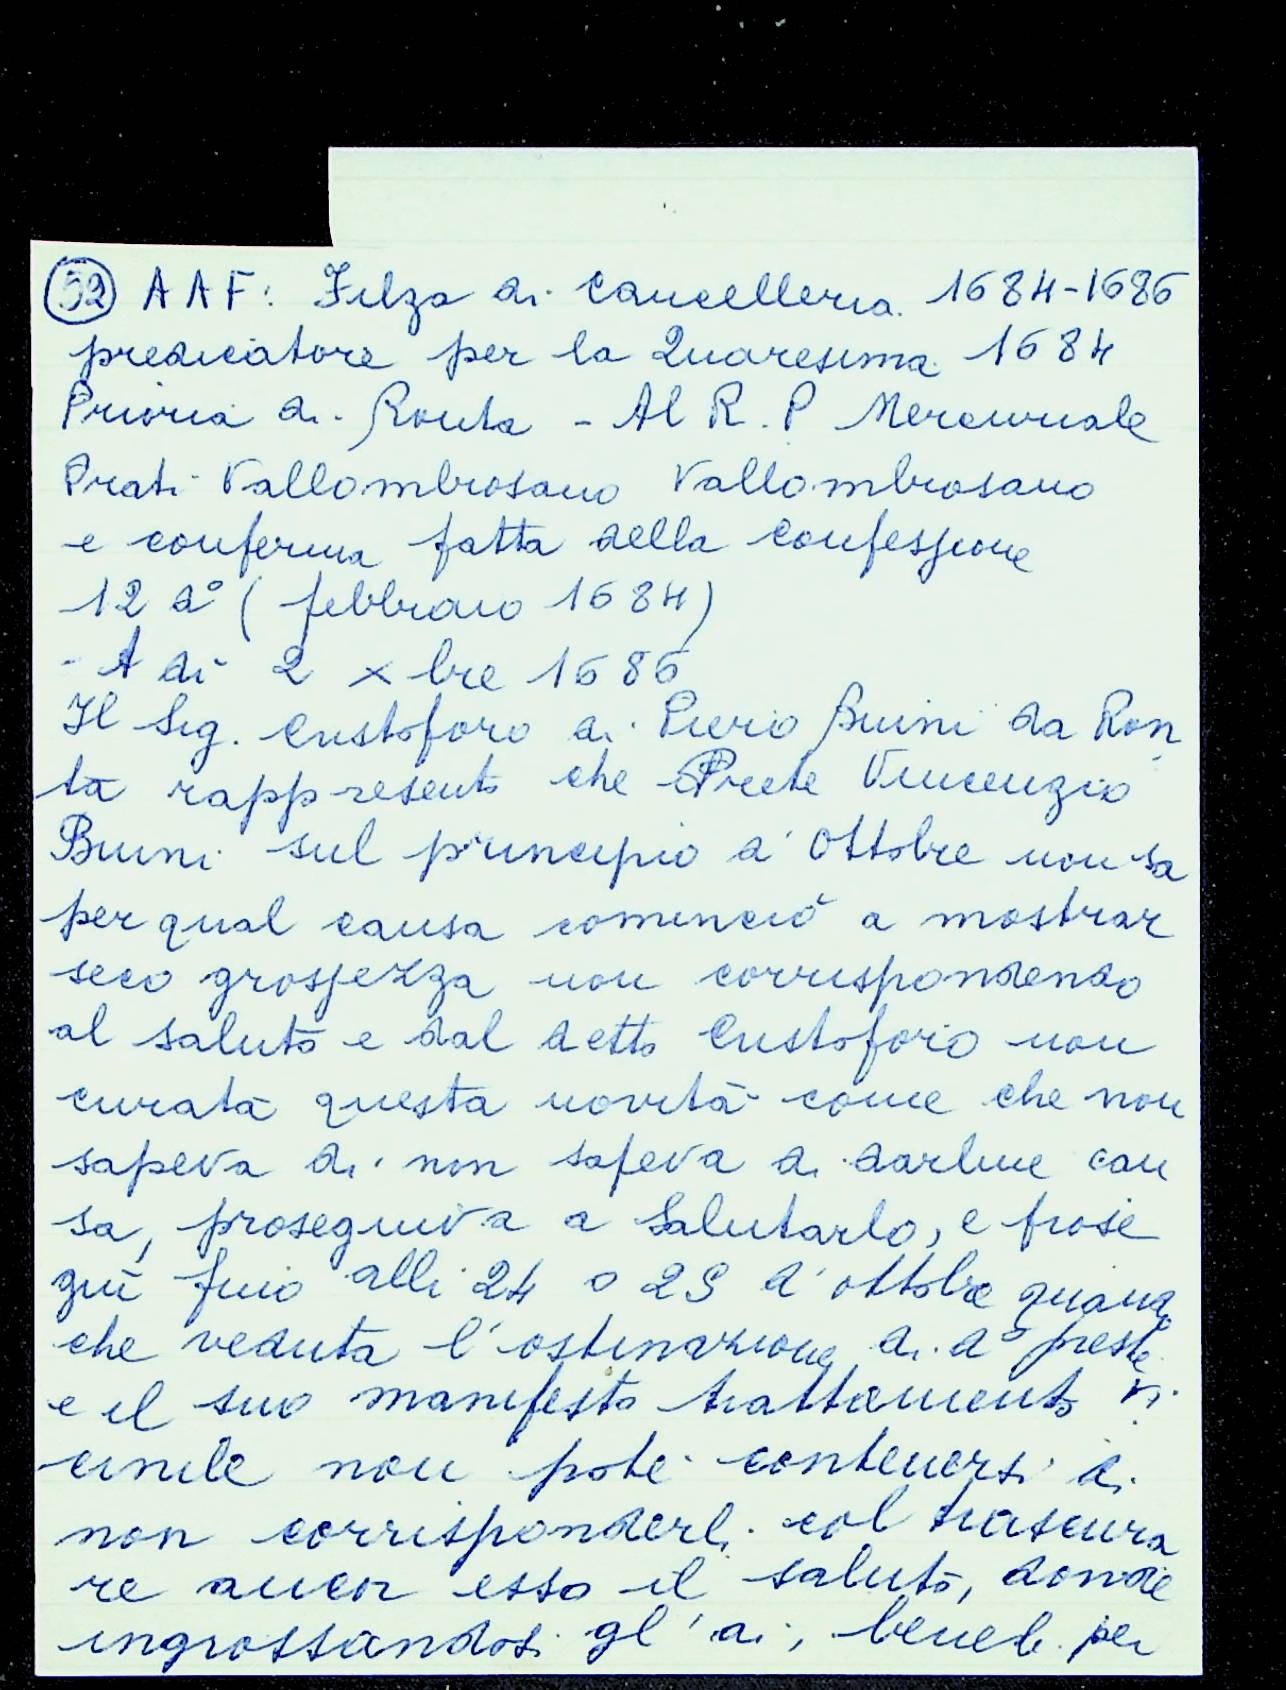 52 AAF: Filza di Cancelleria 1684-1686
predicatore per la Quaresima 1684
Prioria di Ronta - Al R. P Mercuriale
Prati Vallombrosano Vallombrosano
e conferma fatta della confessione
12 d° (febbraio 1684)
- A di 2 xbre 1686
Il Sig. Cristoforo di Pierio Bruni da Ron
ta rappresentò che Prete Vincenzio
Bruni sul principio d'Ottobre non sa
per qual causa cominciò a mostrar
seco grossezza non corrispondendo
al saluto e dal detto Cristoforo non
curata questa novità come che non
sapeva di non sapeva di darline cau
sa, proseguiva a salutarlo, e prose
guì fino alli 24 o 25 d'ottobre quando
che veduta l'ostinazione di d° prete
e il suo manifesto trattamento in
civile non poté contenersi di
non corrisponderli col trascura
re ancor esso il saluto, donde
ingrossandosi gl'ai, per